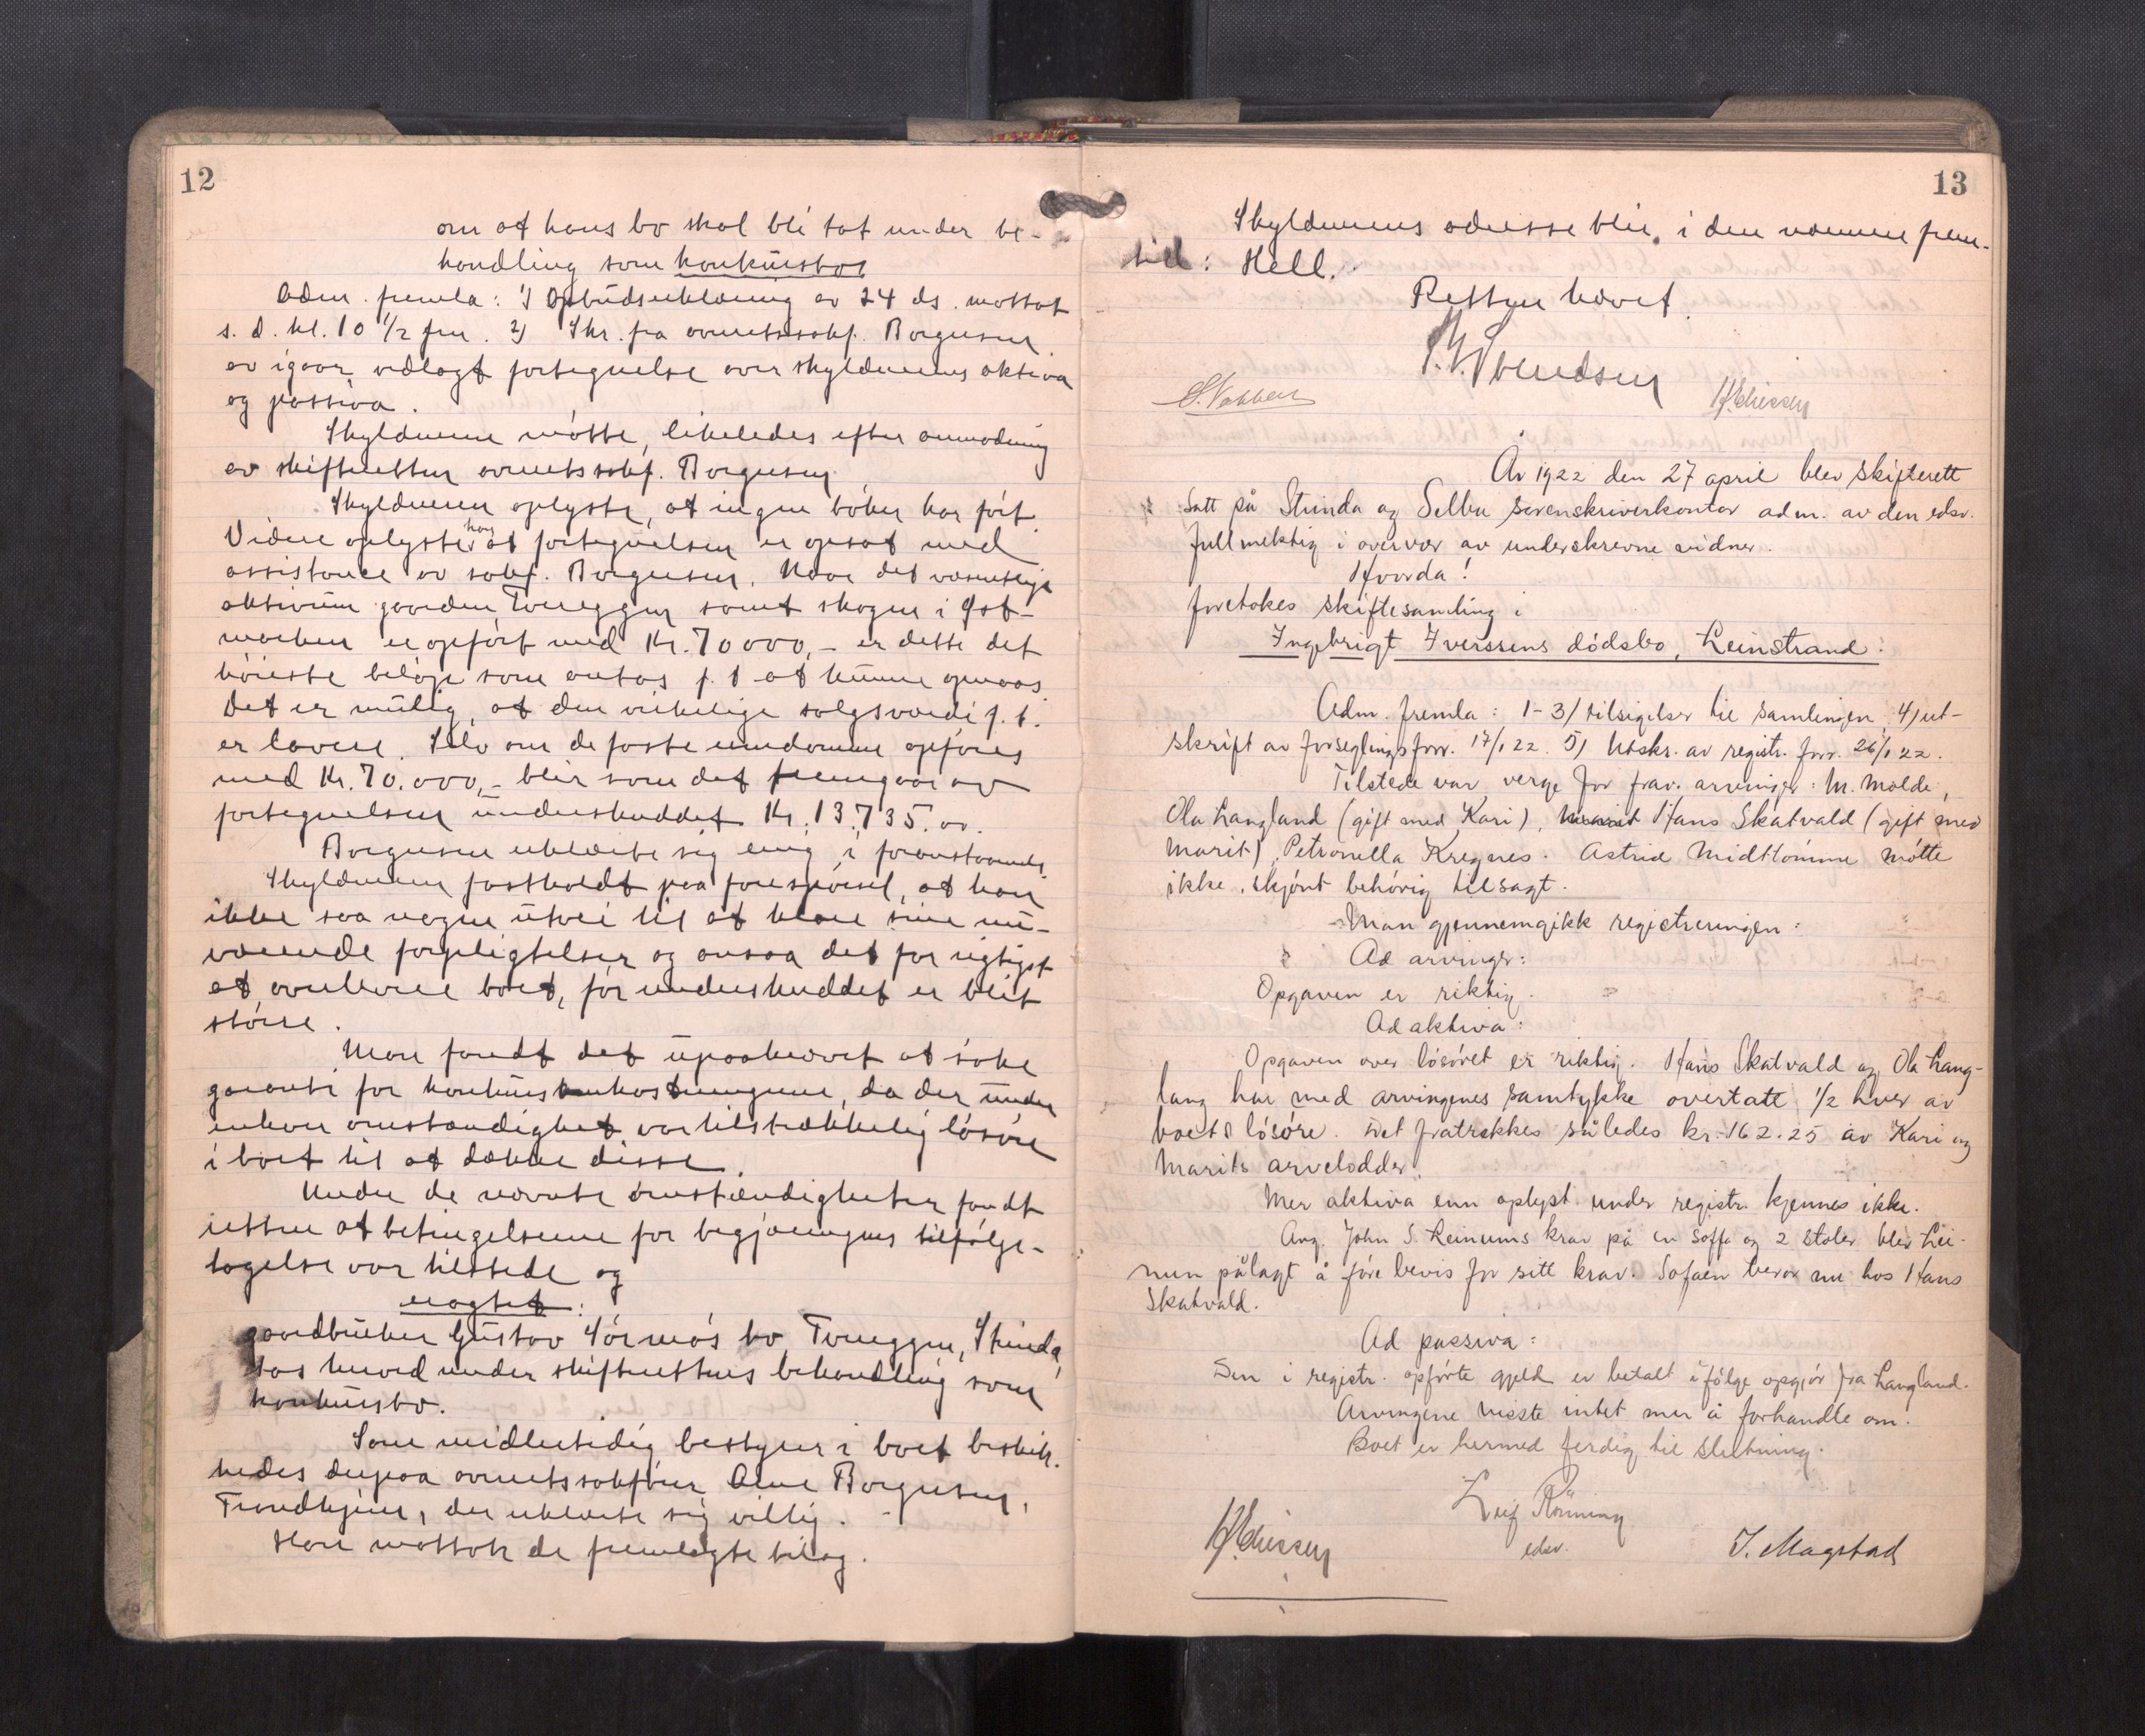 12
om at hans bo skal bli tat under be-
handling som konkursbo
Adm. fremla: 1) Opbudserklæring av 24 ds. mottat
s. d. kl. 10 1/2 fm. 2) Skr. fra overretssakf. Borgersen
av igaar vedlagt fortegnelse over skyldnerens aktiva
og passiva.
Skyldneren møtte, likeledes efter anmodning
av skifteretten overretssakf. Borgersen
Skyldneren oplyste, at ingen bøker har ført
Videre oplyste han at fortegnelsen er opsat med
assistance av sakf. Borgersen. Naar det væsentlige
aktivum gaarden Tvereggen samt skogen i Øst-
marken er opført med Kr. 70000,- er dette det
høieste beløp som antas p. t. at kunne opnaaes
Det er mulig, at den virkelige salgsværdi p. t.
er lavere. Selv om de faste eiendomme opføres
med Kr. 70.000,- blir som det fremgaar av
fortegnelsen underskuddet Kr. 13.735.00.
Borgersen erklærte sig enig i foranstaaende
Skyldneren fastholdt paa forespørsel, at han
ikke saa nogen utvei til at klare sine nu-
værende forpligtelser og ansaa det for rigtigst
at overlevere boet, før underskuddet er blit
større.
Man fandt det upaakrævet at søke
garanti for konkursomkostningene, da der under
enhver omstændighet var tilstrækkelig løsøre
i boet til at dække disse.
Under de nævnte omstændigheter fandt
retten at betingelsene for begjæringens tilfølge-
tagelse var tilstede og
eragtet:
gaardbruker Gustav Sørmos bo Tvereggen, Strinda,
tas herved under skifterettens behandling som
konkursbo.
Som midlertidig bestyrer i boet beskik-
kedes derpaa overretssakfører Arne Borgersen,
Trondhjem, der erklærte sig villig.
Han mottok de fremlagte bilag.
13
Skyldnerens adresse blir, i den nærmere frem-
tid: Hell.
Retten hævet.
Svendsen
År 1922 den 27 april blev skifterett
satt på Strinda og Selbu sorenskriverkontor adm. av den edsv.
fullmektig i overvær av underskrevne vidner.
Hvorda!
foretokes skiftesamling i
Ingebrigt Iverssens dödsbo, Leinstrand:
Adm. fremla: 1-3/ tilsigelser til samlingen, 4) ut-
skrift av forseglingsforr. 17/1 22. 5) Utskr. av registr. forr. 26/1 22.
Tilstede var verge for frav. arvinger: M. Molde,
Ola Langland (gift med Kari), Marit Hans Skatvald (gift med
Marit), Petronella Kregnes. Astrid Midttömme mötte
ikke, skjönt behörig tilsagt.
Man gjennemgikk registreringen:
Ad arvinger:
Opgaven er riktig.
Ad aktiva:
Opgaven over lösöret er riktig. Hans Skatvald og Ola Lang-
lang har med arvingenes samtykke overtatt 1/2 hver av
boets lösöre. Det fratrekkes således kr. 162.25 av Kari og
Marits arvelodder.
Mer aktiva enn oplyst under registr. kjennes ikke.
Ang. John S. Leinums krav på en soffa og 2 stoler blev Lei-
num pålagt å före bevis for sitt krav. Sofaen beror nu hos Hans
Skatvald.
Ad passiva:
Den i registr. opförte gjeld er betalt ifölge opgjör fra Langland.
Arvingene visste intet mer å forhandle om.
Boet er hermed ferdig til slutning.
Leif Rönning
edsv.
J. Magstad